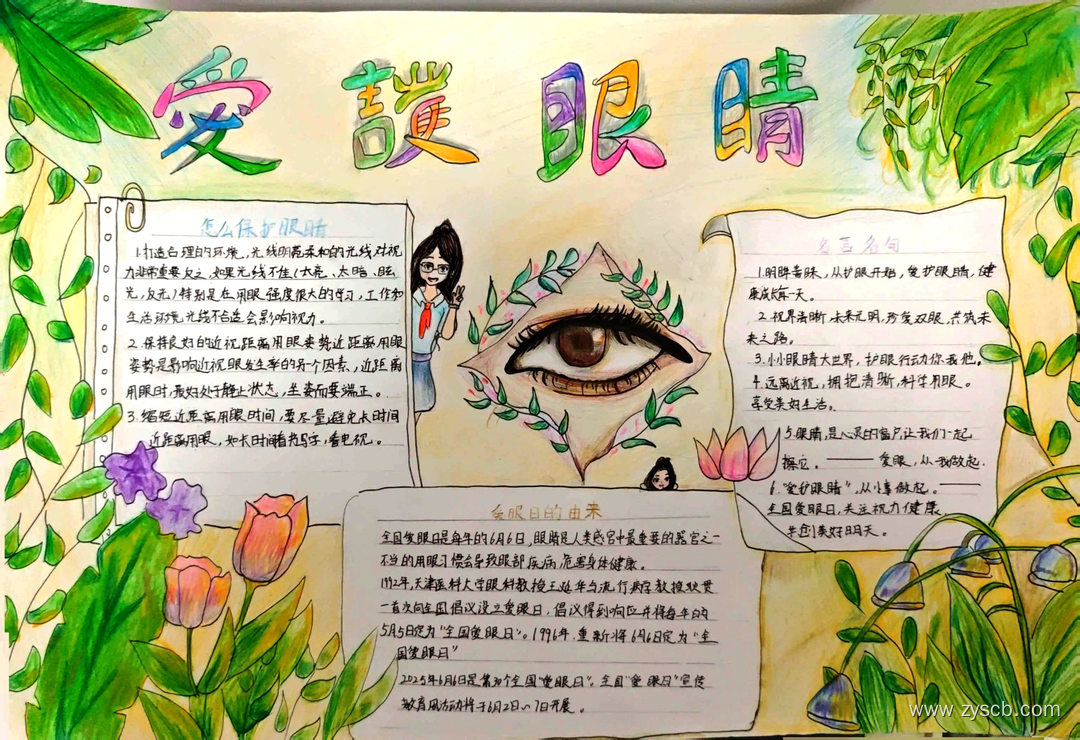 愛護眼睛
怎么保护眼睛
1.打造合理的环境，光线明亮柔和的光线对视
力非常重要反之，如果光线不佳（太亮、太暗、眩
光，反光）特别是在用眼强度很大的学习，工作和
生活环境光线不合适会影响视力。
2.保持良好的近视距离用眼姿势近距离用眼
姿势是影响近视眼发生率的另个因素、近距离
用眼时，最好处于静止状态，坐姿而要端正。
3.缩短近距离用眼时间，要尽量避免长时间
近距离用眼，如长时间看书写字，看电视。
名言名句
1.明眸善睐，从护眼开始，爱护眼睛，健
康成长每一天。
2.视界清晰未来光明，珍爱双眼，共筑未
来之路。
3.小小眼睛大世界，护眼行动你我他。
4.远离近视，拥抱清晰，科学用眼。
享受美好生活。
5.眼睛，是心灵的窗户，让我们一起
擦它。——爱眼，从我做起.
6.“爱护眼睛”，从小事做起。——
全国爱眼日，关注视力健康，
美好明天。
爱眼日的由来
全国爱眼日是每年的6月6日，眼睛是人类感官中最重要的器官之一
不当的用眼习惯会导致眼部疾病，危害身体健康。
1992年，天津医科大学眼科教授王延华与流行病学教授耿贯
一首次向全国倡议设立爱眼日，倡议得到响应并将每年的
5月5日定为“全国爱眼日”。1996年，重新将6月6日定为“全
国爱眼日”
2025年6月6日是第30个全国“爱眼日”。全国“爱眼日”宣传
教育周活动将于6月2日～7日开展。
www.zyscb.com